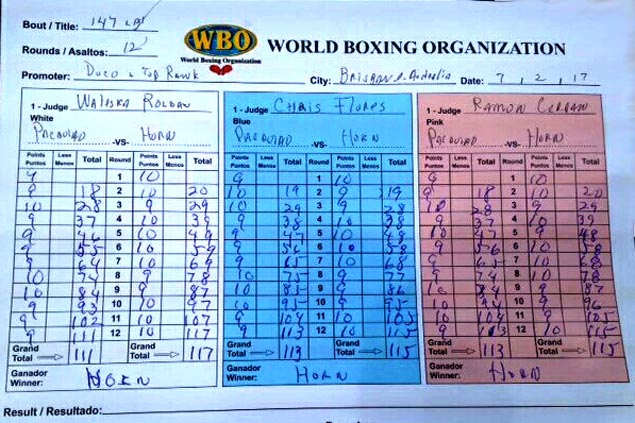 Bout / Title: 147 LB
Rounds / Asaltos: 12
WBO
World Boxing Organization
WORLD BOXING ORGANIZATION
Promoter: DUCO & TOP RANK City: BRISBANE, Australia Date: 7, 2, 17
1 - Judge WALESKA ROLDAN 1 - Judge CHRIS FLORES 1 - Judge RAMON CERDAN
White Blue Pink
PACQUIAO -VS- HORN PACQUIAO -VS- HORN PACQUIAO -VS- HORN
Points Puntos Less Menos Total Round Points Puntos Less Menos Total Points Puntos Less Menos Total Round Points Puntos Less Menos Total Points Puntos Less Menos Total Round Points Puntos Less Menos Total
9 1 10 9 1 10 9 1 10
9 18 2 10 20 10 19 2 9 19 9 18 2 10 20
10 28 3 9 29 10 29 3 9 28 10 28 3 9 29
9 37 4 10 39 9 38 4 10 38 9 37 4 10 39
9 46 5 10 49 9 47 5 10 48 10 47 5 9 48
9 55 6 10 59 9 56 6 10 58 9 56 6 10 58
9 64 7 10 69 9 65 7 10 68 9 65 7 10 68
10 74 8 9 78 10 75 8 9 77 9 74 8 10 78
10 84 9 9 87 10 85 9 9 86 10 84 9 9 87
9 93 10 10 97 10 95 10 9 95 10 94 10 9 96
9 102 11 10 107 9 104 11 10 105 10 104 11 9 105
9 111 12 10 117 9 113 12 10 115 9 113 12 10 115
Grand Total 111 Grand Total 117 Grand Total 113 Grand Total 115 Grand Total 113 Grand Total 115
Ganador Winner: HORN Ganador Winner: HORN Ganador Winner: HORN
Result / Resultado: